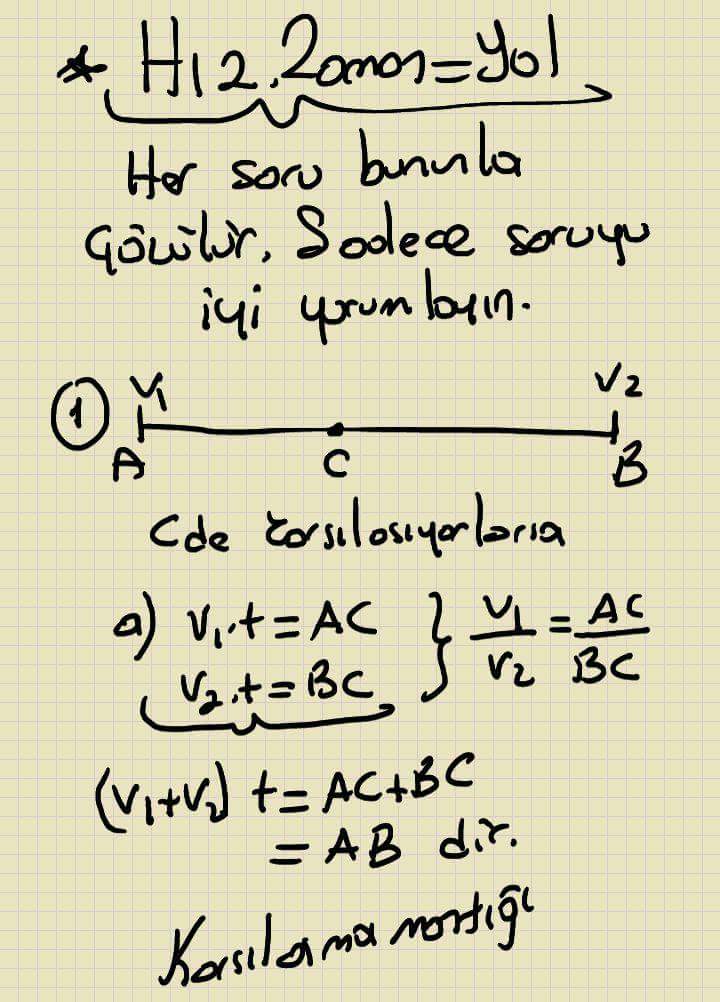 * Hız.Zaman=Yol
Her soru bununla
çözülür. Sadece soruyu
iyi yorumlayın.
① V₁ V₂
A C B
C de karşılaşıyorlarsa
a) V₁.t=AC } V₁/V₂ = AC/BC
V₂.t=BC
(V₁+V₂) t=AC+BC
=AB dir.
Karşılama mantığı